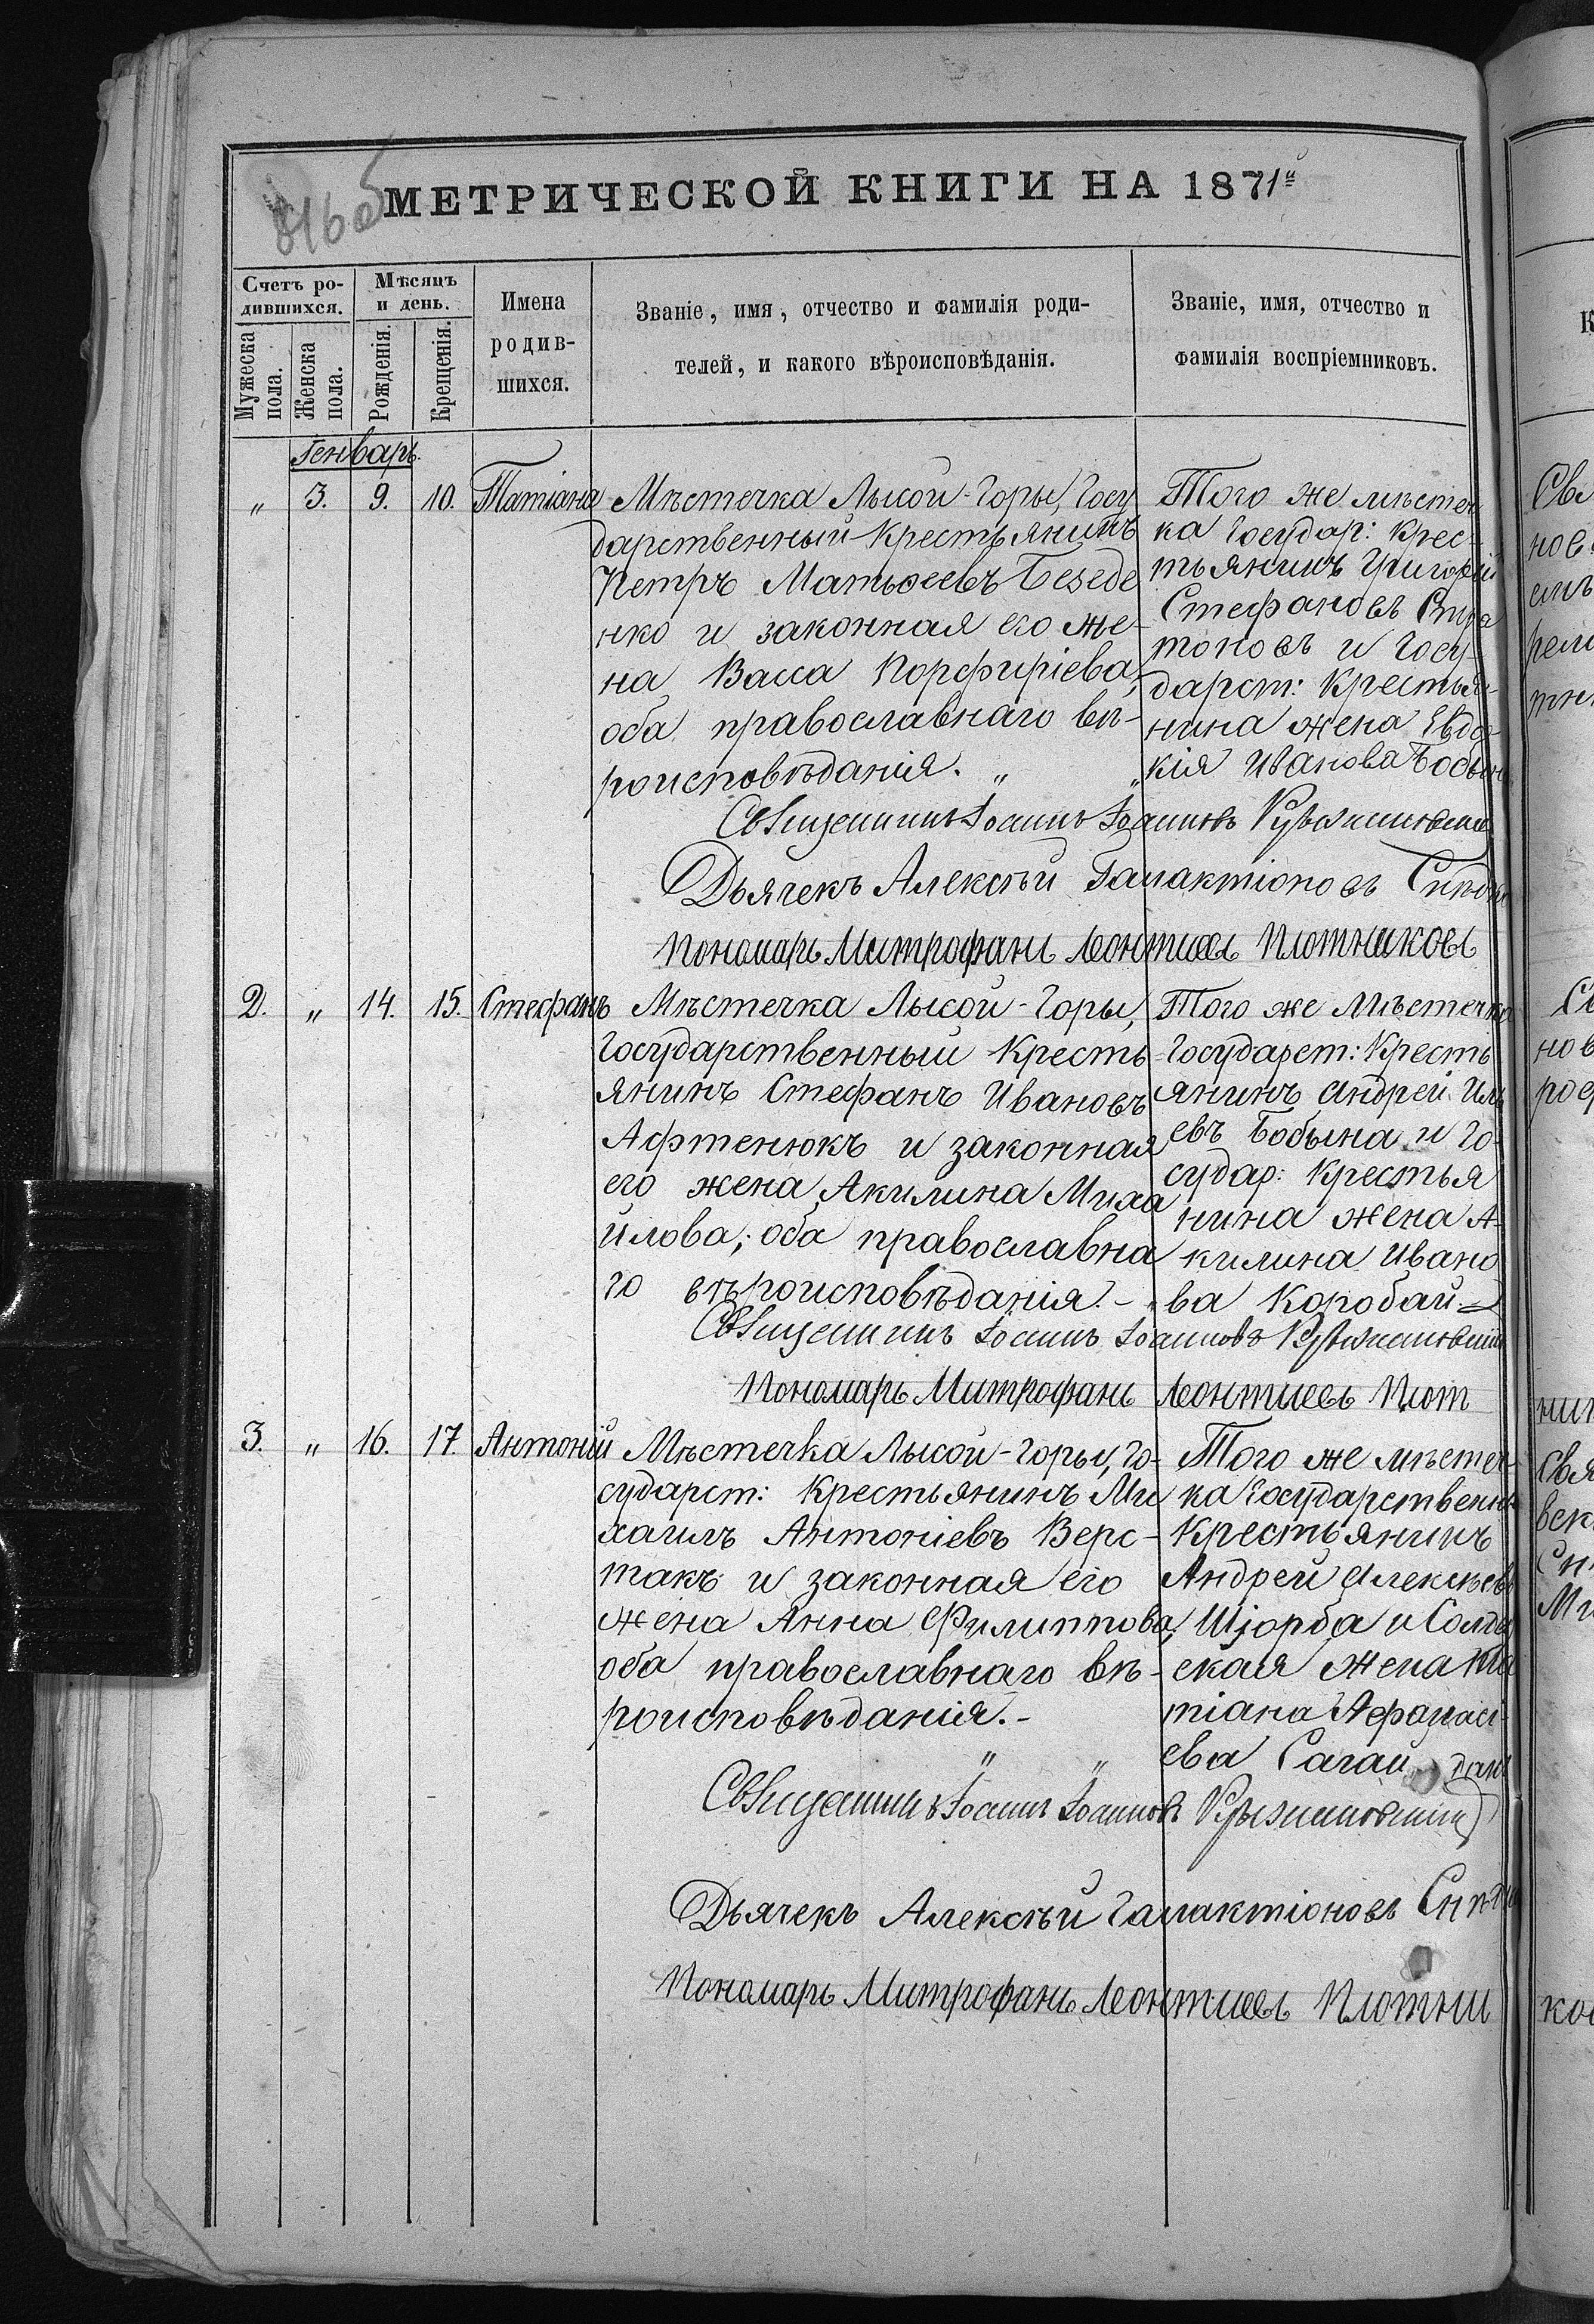 МЕТРИЧЕСКОЙ КНИГИ НА 1871й
Счетъ ро-
дившихся.
Мѣсяцъ
и день.
Имена
родив-
шихся.
Званіе, имя, отчество и фамилія роди-
телей, и какого вѣроисповѣданія.
Званіе, имя, отчество и
фамилія воспріемниковъ.
Мужеска
пола.
Женска
пола.
Рожденія.
Крещенія.
Генварь.
„ 3. 9. 10. Татіана
Мѣстечка Лысой-Горы, Госу
дарственный Крестьянинъ
Петръ Матѳеевъ Безде
нко и законная его же-
на Васса Порфиріева,
оба православнаго вѣ-
роисповѣданія. „ „
Того же мѣстеч
ка Государ: Крес-
тьянинъ Григорій
Стефановъ
тоновъ и Госу-
дарст: Крестья-
нина жена Евдо-
кія Иванова Бобын
Священникъ Іоаннъ Іоанновъ
Дьячекъ Алексѣй Галактіоновъ
Пономарь Митрофанъ Леонтиевъ Плотниковъ
2. „ 14. 15. Стефанъ
Мѣстечка Лысой-Горы,
Государственный Кресть
янинъ Стефанъ Ивановъ
Афтенюкъ и законная
его жена Акилина Миха
йлова; оба православна
го вѣроисповѣданія. - „
Того же Мѣстечка
Государст: Кресть
янинъ Андрей Иль
евъ Бобына и Го-
судар: Крестья
нина жена А-
килина Ивано
ва Коробай
Священникъ Іоаннъ Іоанновъ
Пономарь Митрофанъ Леонтиевъ Плот
3. „ 16. 17. Антоній
Мѣстечка Лысой-Горы, Го-
сударст: Крестьянинъ Ми
хаилъ Антоніевъ Верс-
такъ и законная его
жена Анна Филиппова,
оба православнаго вѣ-
роисповѣданія. -
„ „
Того же мѣстеч-
ка Государственн
Крестьянинъ
Андрей Алексѣевъ
и Солда
ская жена Та
тіана Афанасі-
ева Сагай дак
Священникъ Іоаннъ Іоанновъ
Дьячекъ Алексѣй Галактіоновъ
Пономарь Митрофанъ Леонтиевъ Плотни